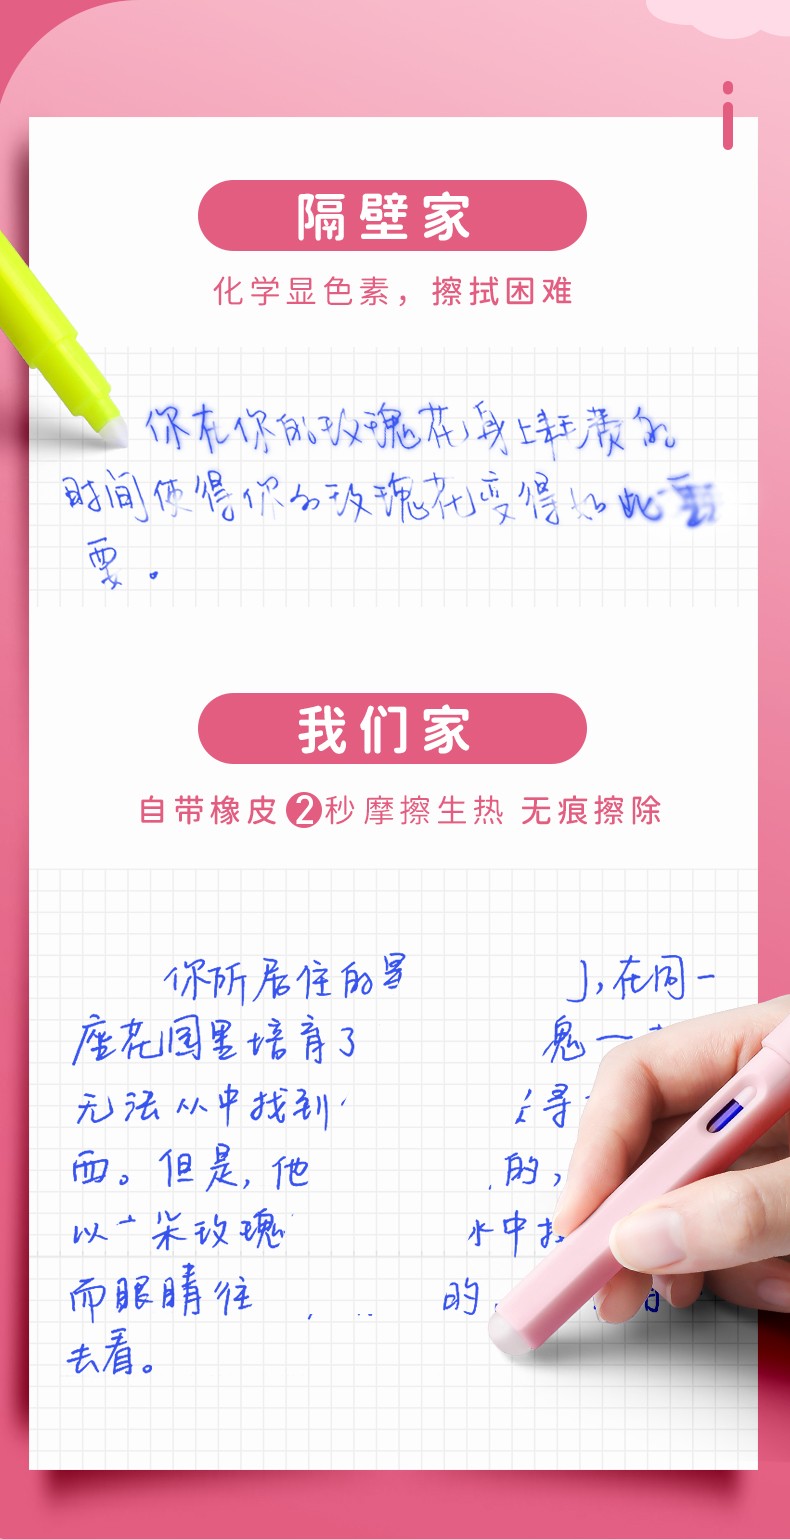 隔壁家
化学显色素，擦拭困难
你在你的玫瑰花身上耗费的
时间使得你的玫瑰花变得如此重
要。
我们家
自带橡皮2秒摩擦生热 无痕擦除
你所居住的 ，在同一
座花园里培育了
无法从中找到 寻
西。但是，他 的，
以一朵玫瑰 水中
而眼睛往 的，
去看。